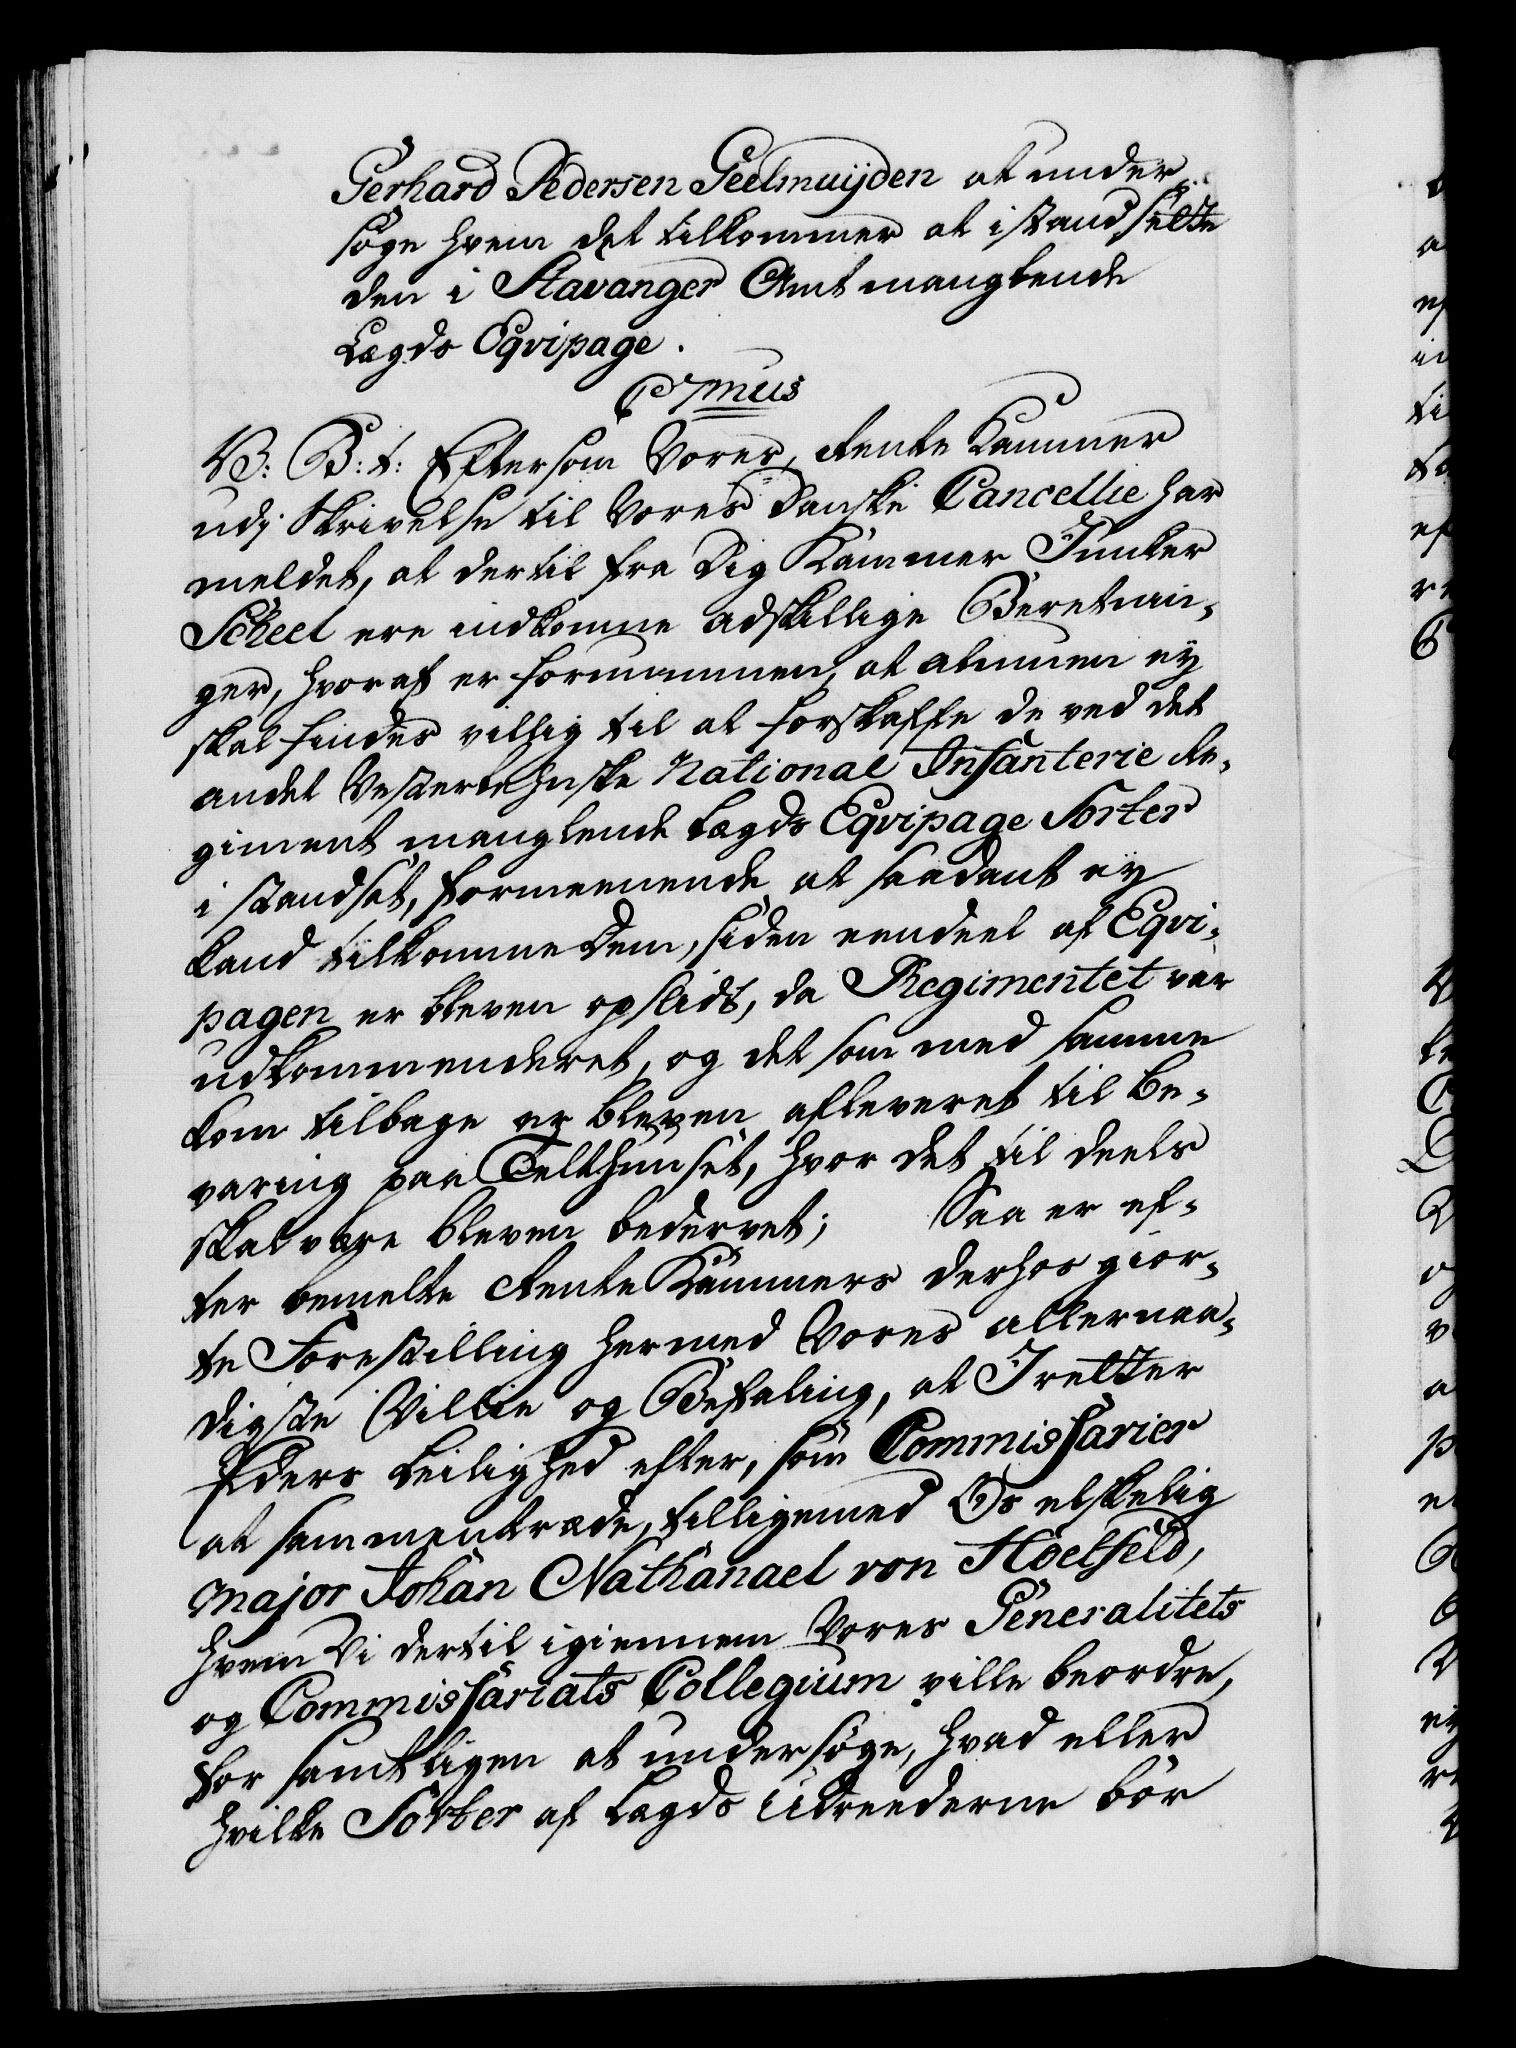 Gerhard Pedersen Geelmuijden at under
søge hvem det tilkommer at istandsette
den i Stavanger Amt manglende
Lægds Eqvipage.
P mus
V: G: t: Eftersom Vores Rente Kammer
udj Skrivelse til Vores Danske Cancellie har
meldet, at dertil fra Dig Kammer Junker
Scheel ere indkomne adskillige Beretnin-
ger, hvoraf er fornummen, at almuen ey
skal findes villig til at forskaffe de ved det
andet Vesterlehnske National Infanterie Re-
giment manglende Lægds Eqvipage Sorter
i standsat, formeenende at saadant ey
kand tilkomme Dem, siden eendeel af Eqvi-
pagen er bleven opslidt, da Regimentet var
udkommenderet, og det som med samme
kom tilbage er bleven afleveret til be-
varing paa Telthuuset, hvor det til deels
skal være bleven bedervet; Saa er ef-
ter bemelte Rente Kammers derhos gior-
te Forestilling hermed Vores allernaa-
digste Villie og Befaling, at I retter
Eders Leilighed efter, som Commissarier
at sammentræde, tilligemed Os elskelig
Major Johan Nathanael von Hoelfeld,
hvem Vi dertil igiennem Vores Generalitets
og Commissariats Collegium ville beordre,
for samtligen at undersøge, hvad eller
hvilke Sorter af Lægds Udreederne bør